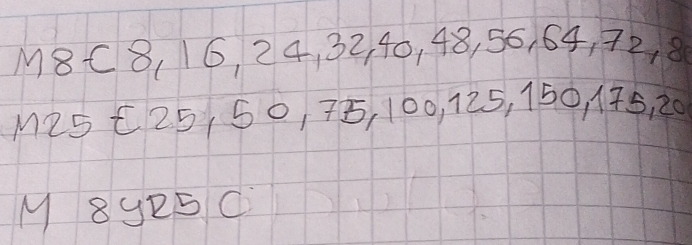 M8 { 8, 16, 24, 32, 40, 48, 56, 64, 72, 8
M25 { 25, 50, 75, 100, 125, 150, 175, 20
M 8y25 {